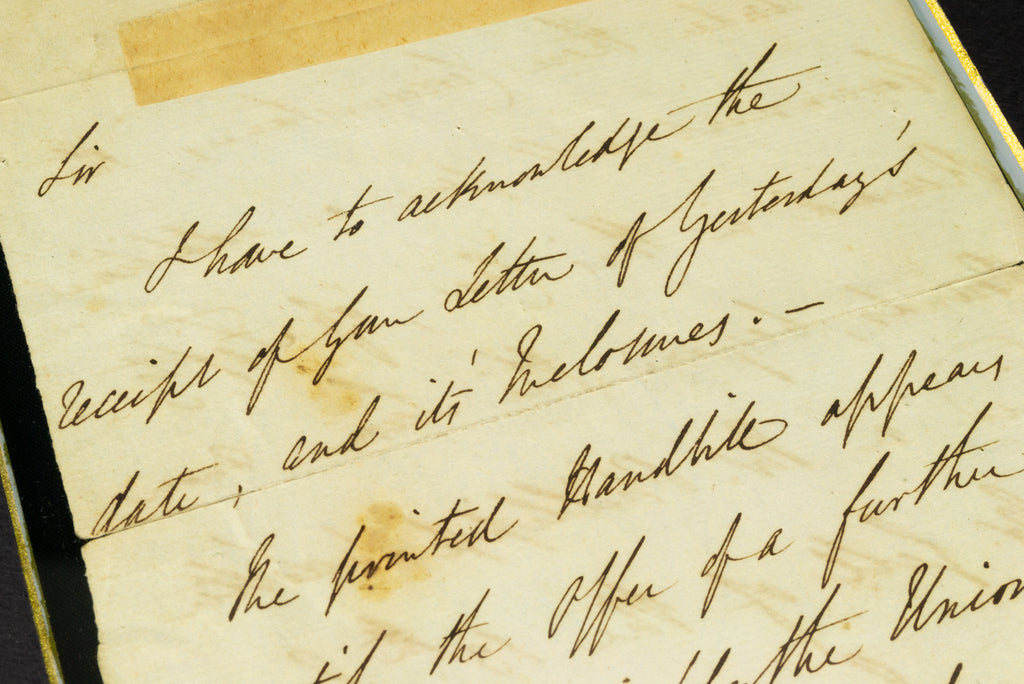 Sir
I have to acknowledge the
receipt of Your Letter of Yesterday's
date, and it's Inclosures. —
The printed Handbill appears
the offer of a further
by the Union